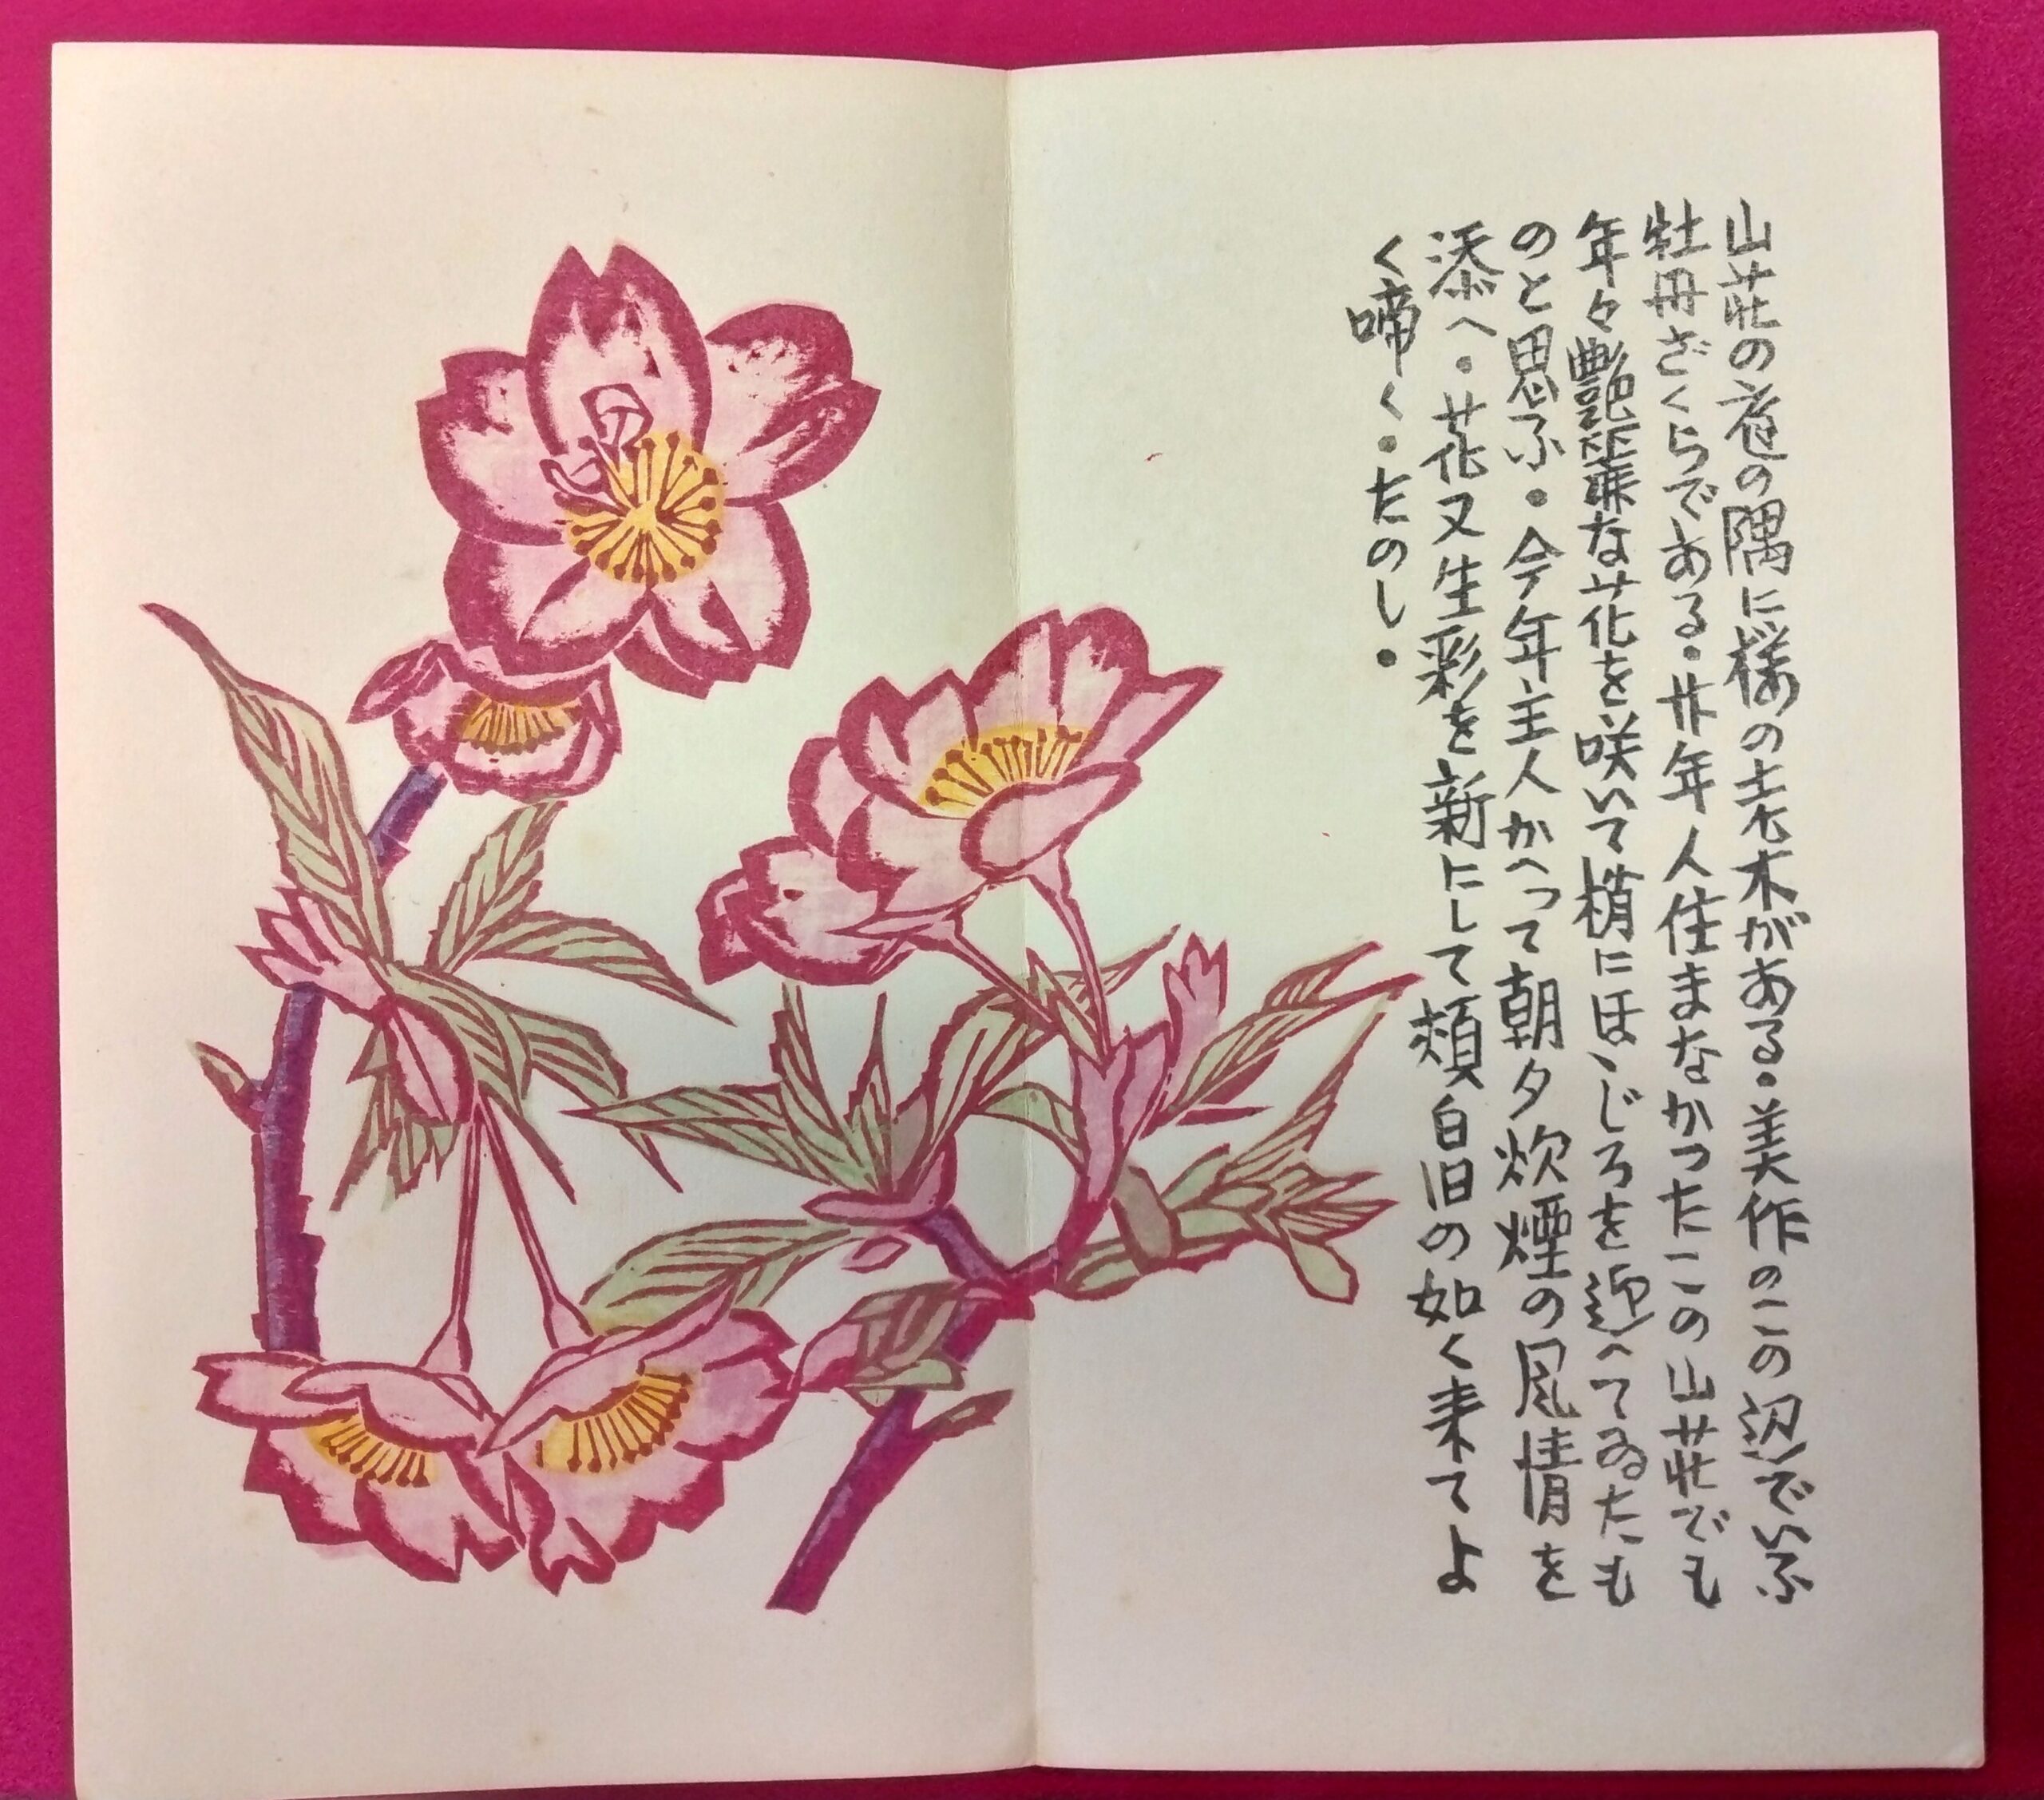 山荘の庭の隅に桜の老木がある・美作のこの辺でいふ
牡丹ざくらである・廿年人住まなかったこの山荘でも
年々艶華な花を咲いて梢にほゝじろを迎へてゐたも
のと思ふ・今年主人かへって朝夕炊煙の風情を
添へ・花又生彩を新にして頬白旧の如く来てよ
く啼く・たのし・